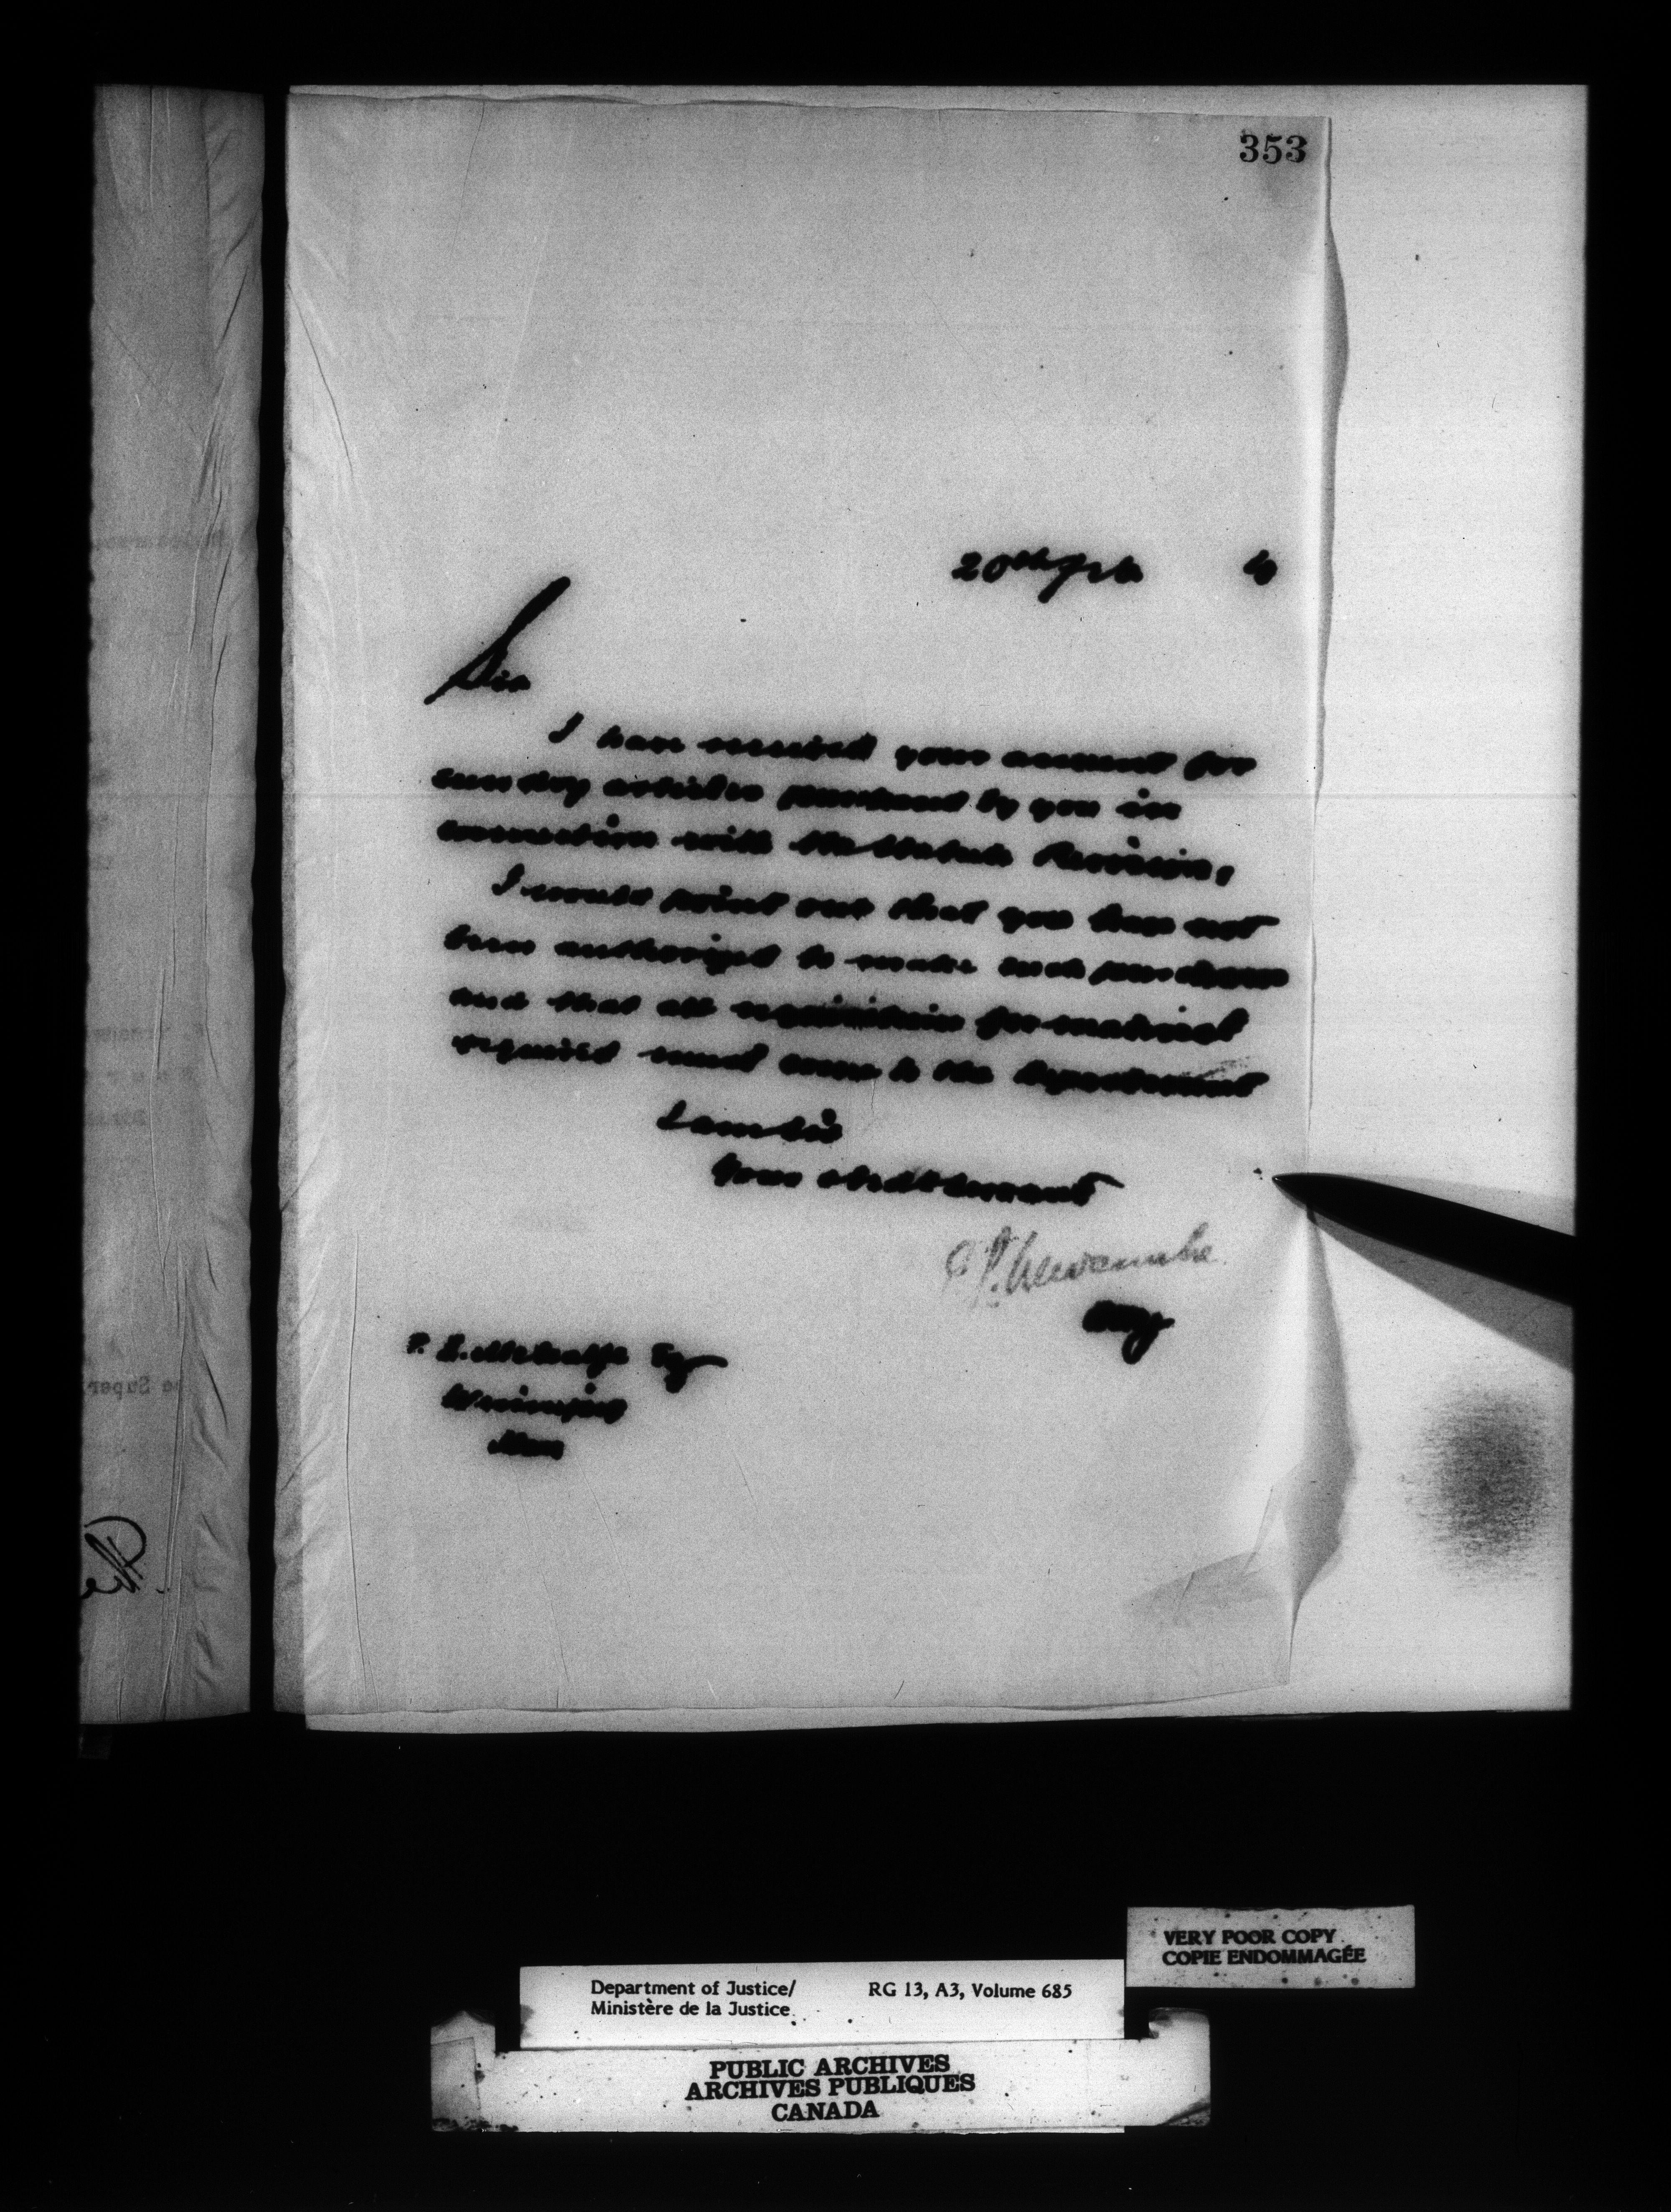 353
20th Feb 4
Sir
I have received your account for
sundry articles purchased by you in
connection with the Statute Revision,
I would point out that you have not
been authorized to make such purchases
and that all requisitions for material
required must come to the Department
I am Sir
Your obedt Servant
E. L. Newcombe
P. E. Metcalfe Esq
Winnipeg
Man
VERY POOR COPY
COPIE ENDOMMAGÉE
Department of Justice/ RG 13, A3, Volume 685
Ministère de la Justice
PUBLIC ARCHIVES
ARCHIVES PUBLIQUES
CANADA